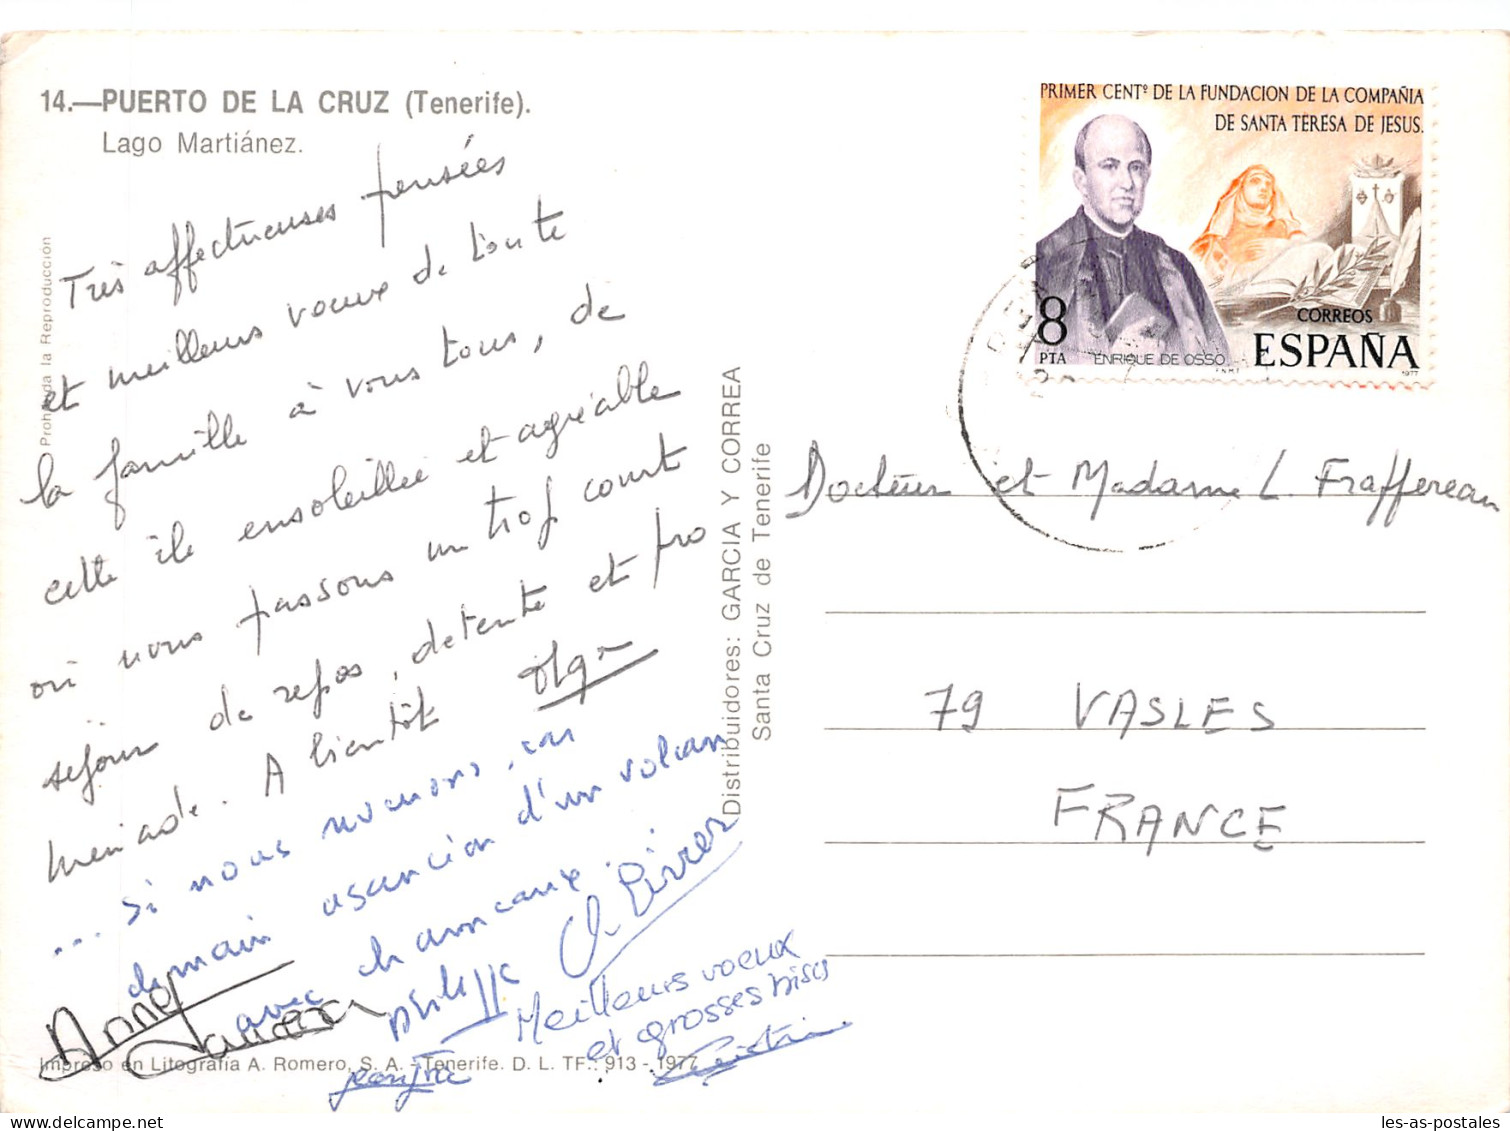 14.—PUERTO DE LA CRUZ (Tenerife).
Lago Martiánez.
Très affectueuses pensées
et meilleurs voeux de toute
la famille à vous tous, de
cette île ensoleillée et agréable
où nous passons un trop court
séjour de repos, détente et pro
menade. A bientôt Olga
... si nous revenons, car
demain ascension d'un volcan
avec chameaux.
Philippe
Anne
Meilleurs voeux
et grosses bises
Christine
Prohibida la Reproducción
Impreso en Litografía A. Romero, S. A. - Tenerife. D. L. TF.: 913 - 1977
Distribuidores: GARCIA Y CORREA
Santa Cruz de Tenerife
PRIMER CENTº DE LA FUNDACION DE LA COMPAÑIA
DE SANTA TERESA DE JESUS.
8
PTA
ENRIQUE DE OSSO
CORREOS
ESPAÑA
F.N.M.T.
1977
Docteur et Madame L. Fraffereau
79 VASLES
FRANCE
les-as-postales